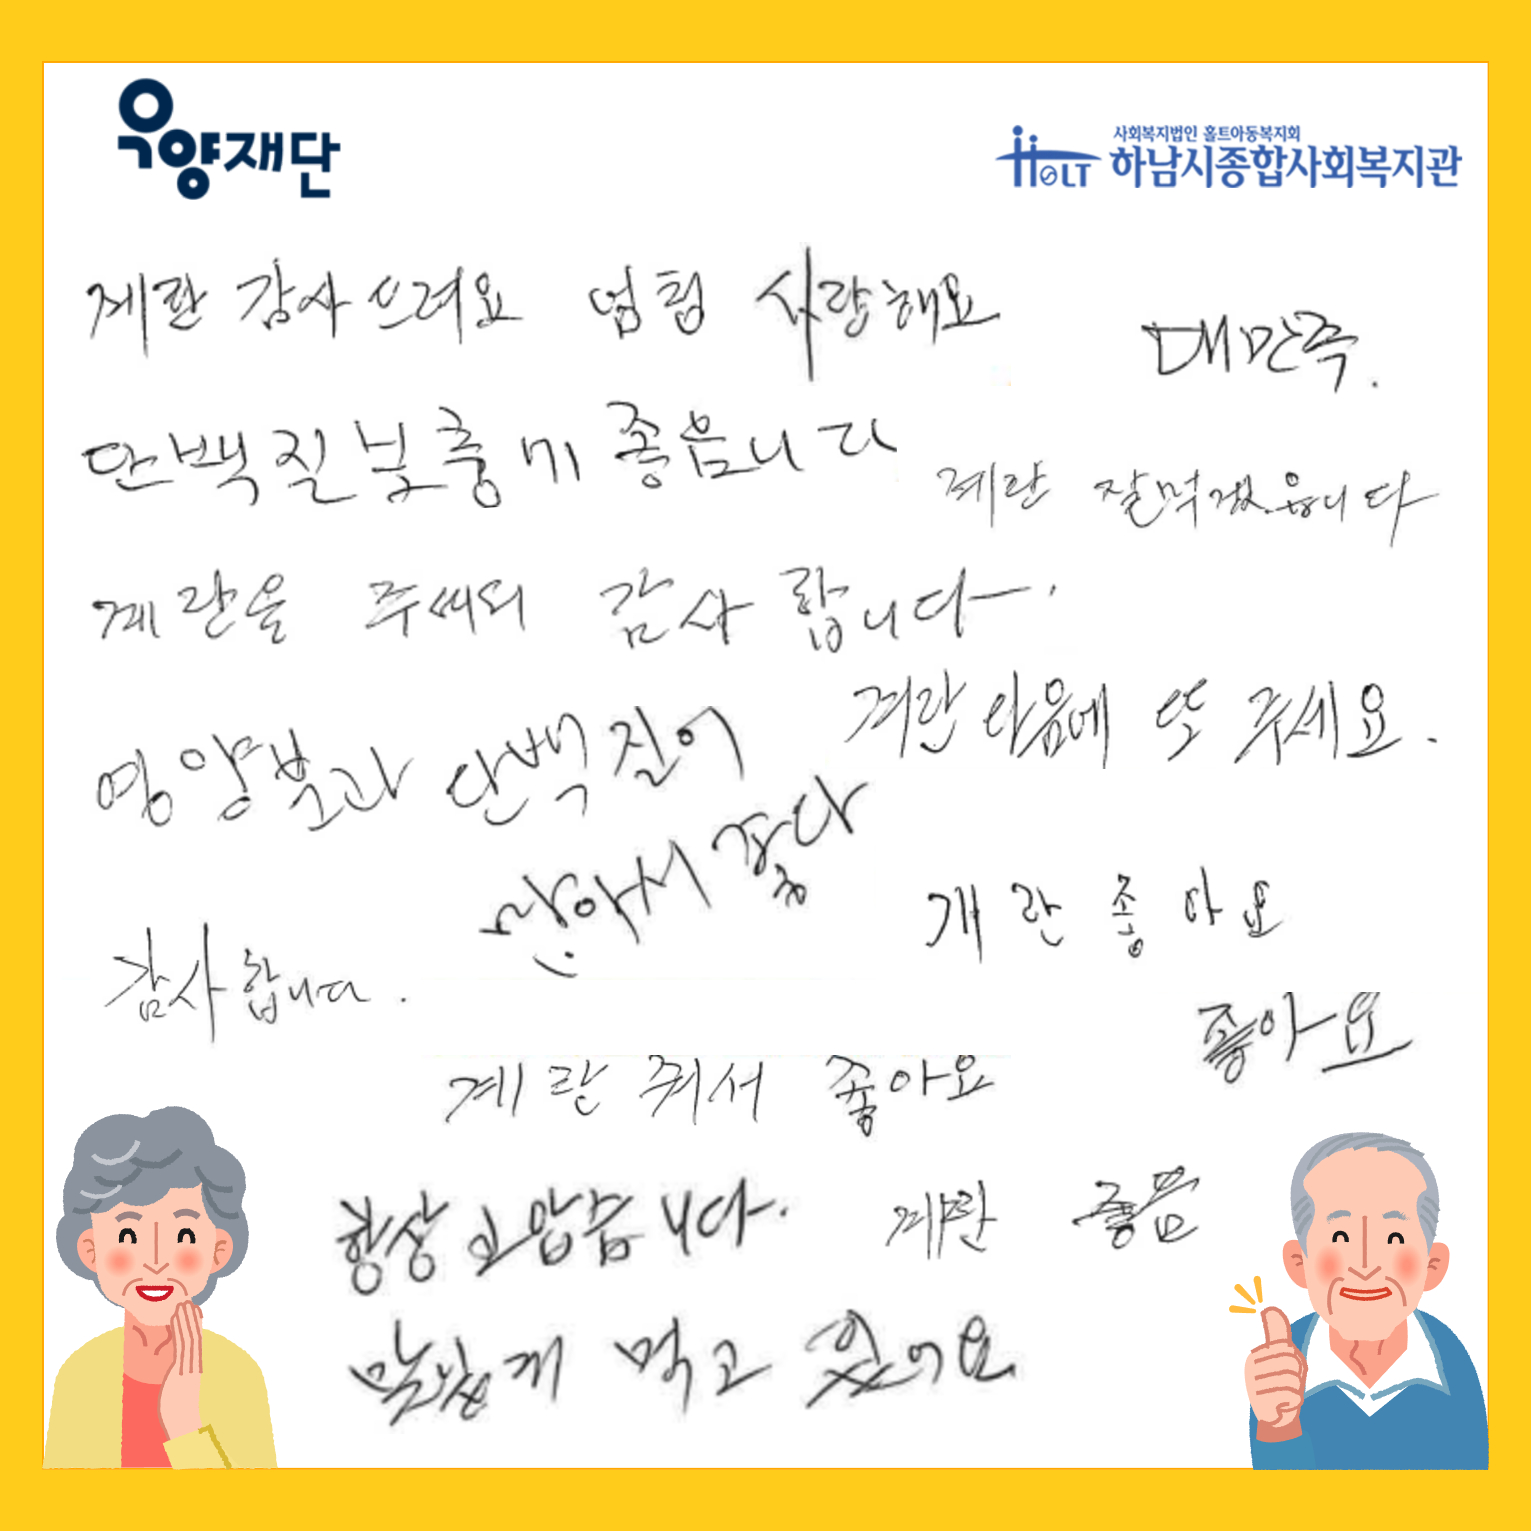 우양재단
사회복지법인 홀트아동복지회
HOLT 하남시종합사회복지관
계란 감사 드려요 엄청 사랑해요
대만족.
단백질보충에 좋읍니다
계란 잘먹겠읍니다
계란을 주씨외 감사 합니다.
계란 다음에 또 주세요.
영양분과 단백질이
많아서 좋다
개란 좋아요
감사합니다.
좋아요
계란 줘서 좋아요
항상 고맙습니다.
계란 좋음
맛있게 먹고 있어요